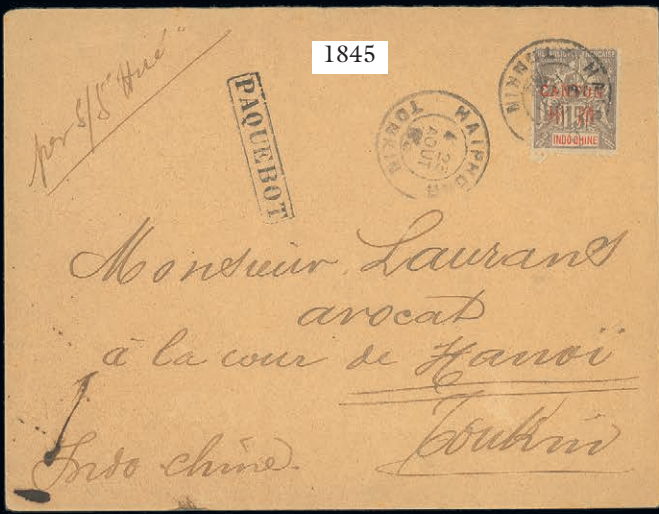 1845
per S/S "Hué"
PAQUEBOT
HAIPHONG
AOUT
TONKIN
TONKIN
CANTON
15
INDO-CHINE
Monsieur Laurans
avocat
à la cour de Hanoï
Tonkin
Indo chine.